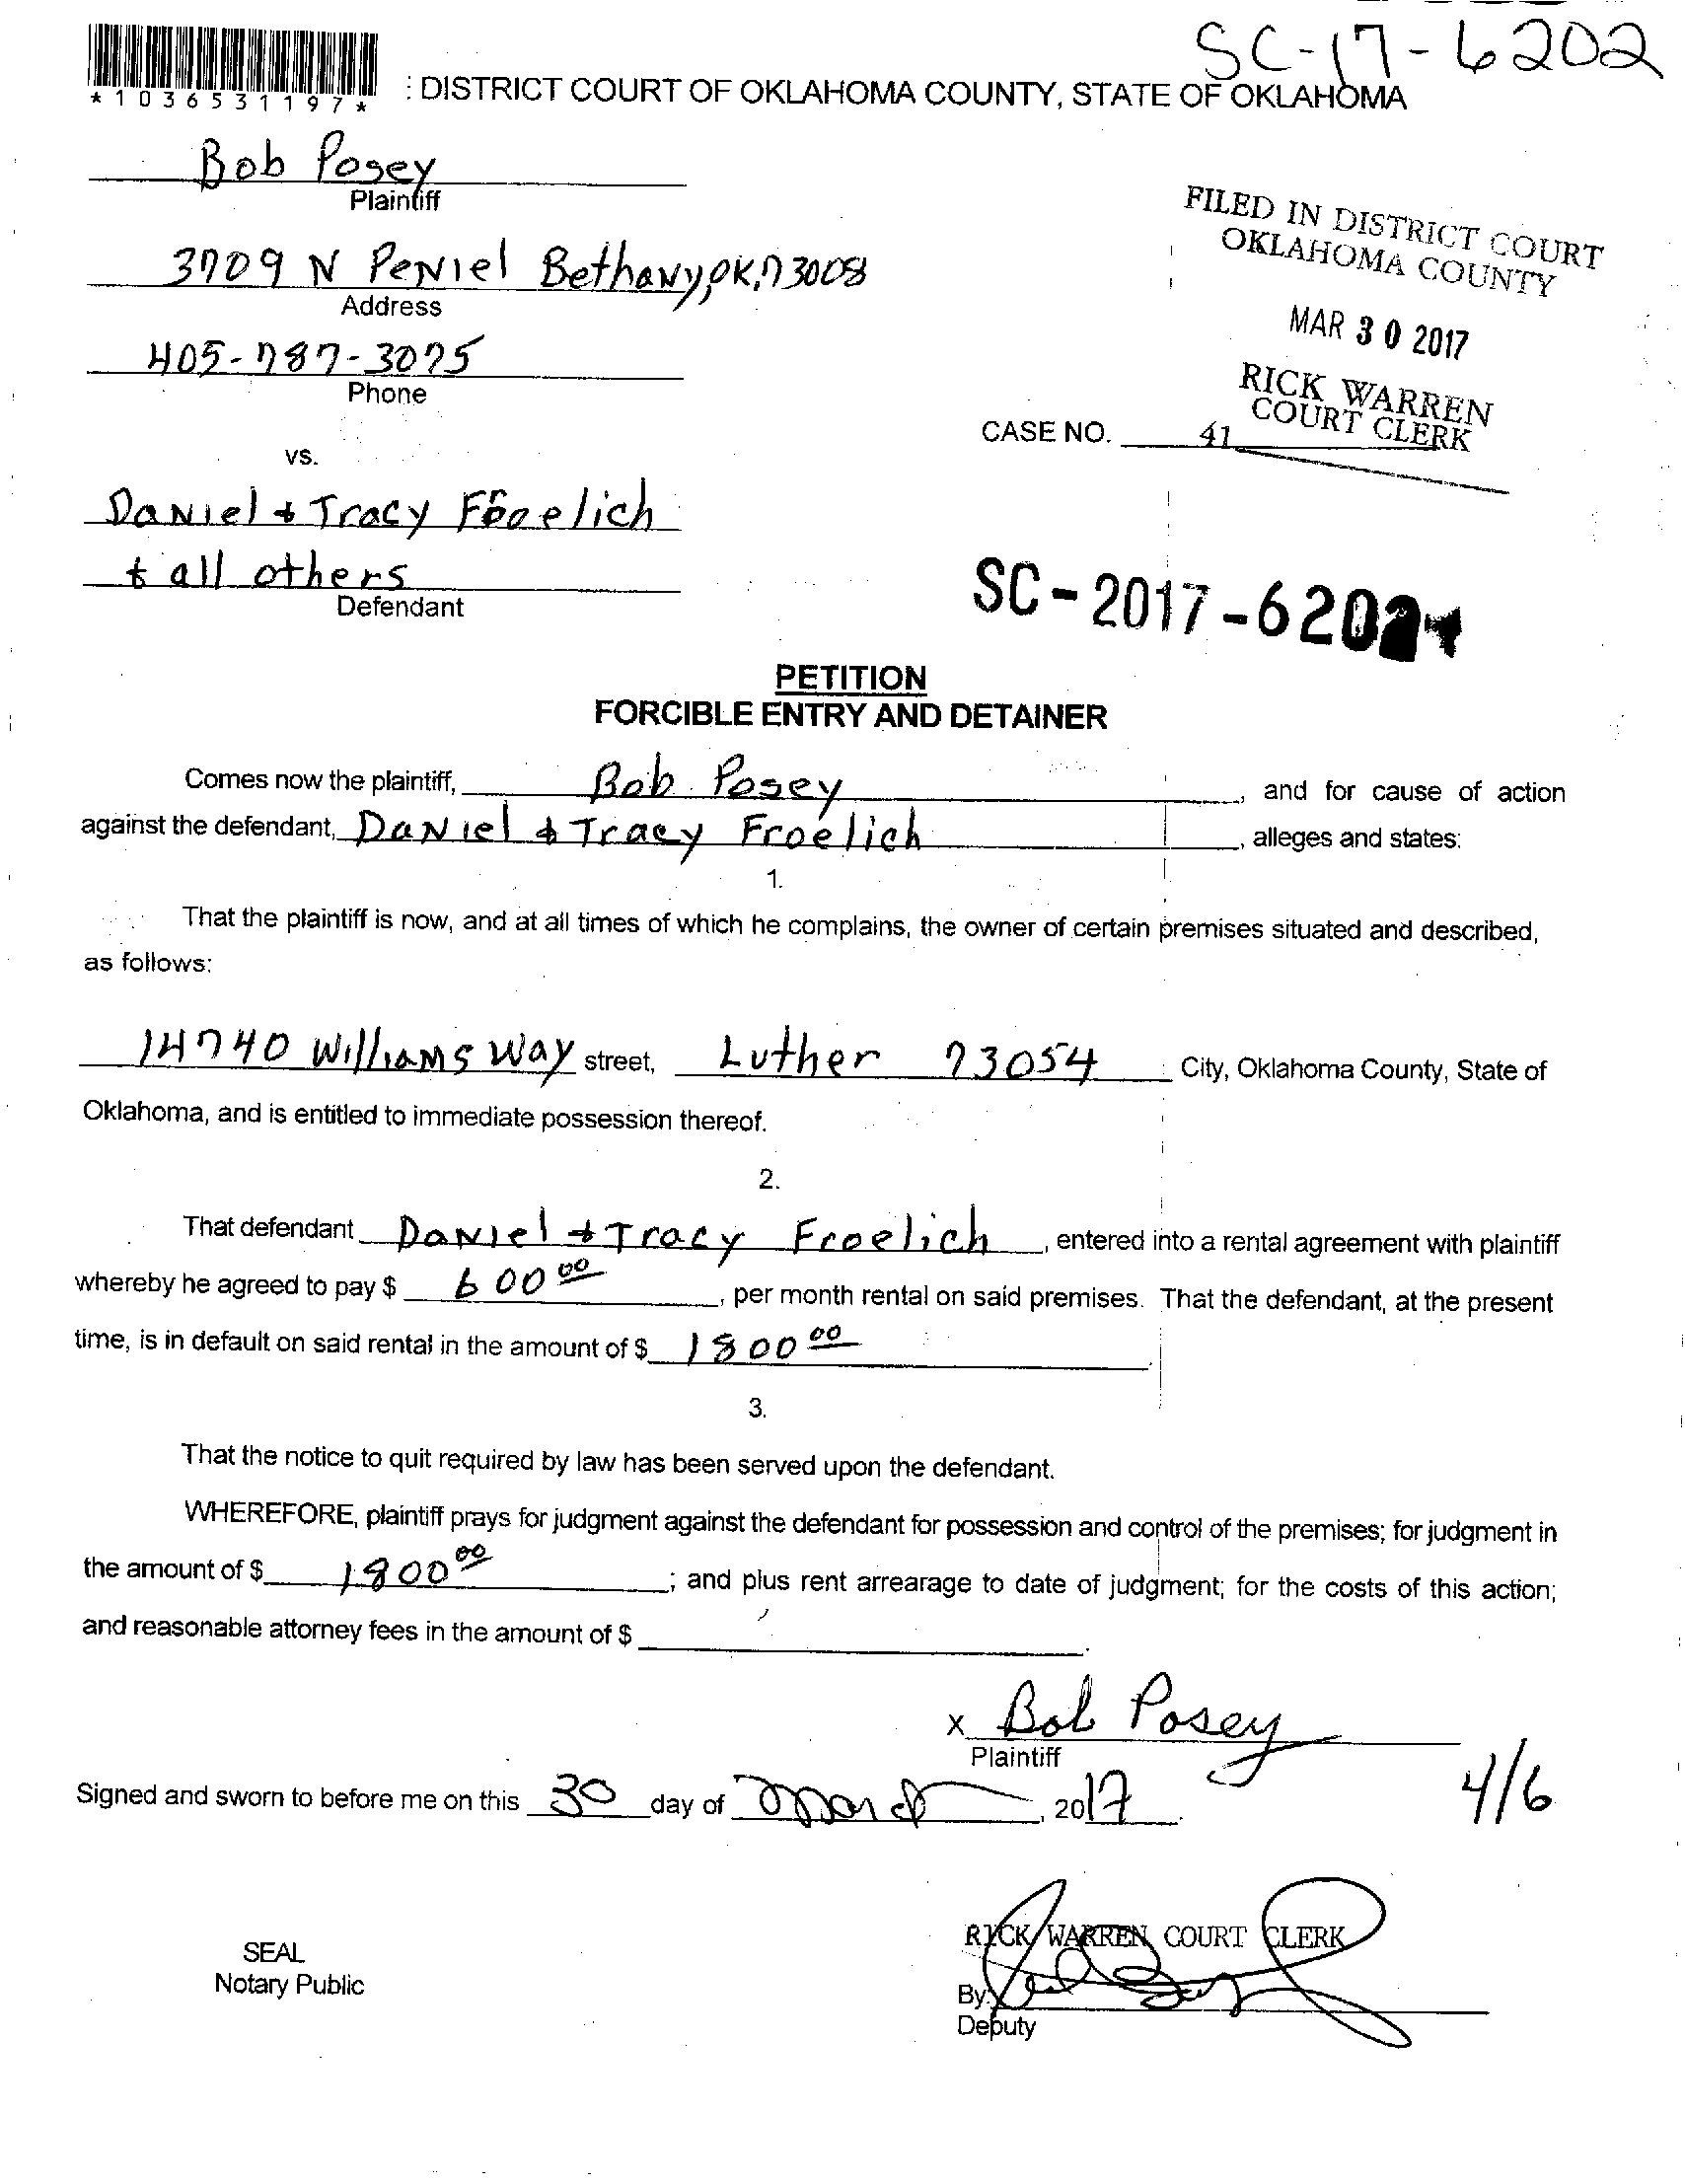 SC-17-6202
*1036531197*
: DISTRICT COURT OF OKLAHOMA COUNTY, STATE OF OKLAHOMA
Bob Posey
Plaintiff
3709 N Peniel Bethany, OK, 73008
Address
405-787-3075
Phone
FILED IN DISTRICT COURT
OKLAHOMA COUNTY
MAR 30 2017
RICK WARREN
COURT CLERK
CASE NO. 41
vs.
Daniel & Tracy Froelich
& all others
Defendant
SC-2017-6202
PETITION
FORCIBLE ENTRY AND DETAINER
Comes now the plaintiff, Bob Posey, and for cause of action
against the defendant, Daniel & Tracy Froelich, alleges and states:
1.
That the plaintiff is now, and at all times of which he complains, the owner of certain premises situated and described,
as follows:
14740 Williams Way street, Luther 73054 City, Oklahoma County, State of
Oklahoma, and is entitled to immediate possession thereof.
2.
That defendant Daniel & Tracy Froelich, entered into a rental agreement with plaintiff
whereby he agreed to pay $ 600 00, per month rental on said premises. That the defendant, at the present
time, is in default on said rental in the amount of $ 1800 00.
3.
That the notice to quit required by law has been served upon the defendant.
WHEREFORE, plaintiff prays for judgment against the defendant for possession and control of the premises; for judgment in
the amount of $ 1800 00; and plus rent arrearage to date of judgment; for the costs of this action;
and reasonable attorney fees in the amount of $ .
x Bob Posey
Plaintiff
4/6
Signed and sworn to before me on this 30 day of March, 2017.
RICK WARREN COURT CLERK
SEAL
Notary Public
By:
Deputy